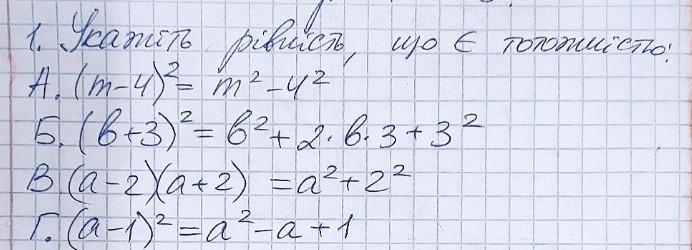 1. Укажіть рівність, що є тотожністю:
А. (m-4)² = m² - 4²
Б. (b+3)² = b² + 2·b·3 + 3²
В (a-2)(a+2) = a² + 2²
Г. (a-1)² = a² - a + 1